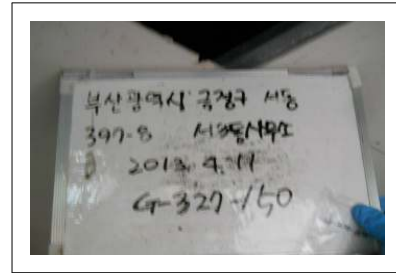 부산광역시 금정구 서동
397-8 서3동사무소
2013. 4. 11
G-327-150